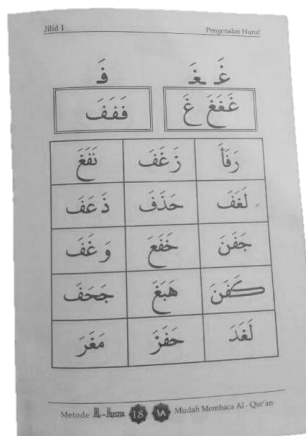 Jilid 1 Pengenalan Huruf
غَ غَـ فَـ
غَغَغَ غَ فَفَفَ
رَفَأَ زَغَفَ نَفَغَ
لَغَفَ حَذَفَ ذَعَفَ
جَفَنَ خَفَعَ وَغَفَ
كَفَنَ هَبَغَ جَحَفَ
لَغَدَ حَفَزَ مَغَرَ
Metode Al-Husna 18 ١٨ Mudah Membaca Al - Qur'an